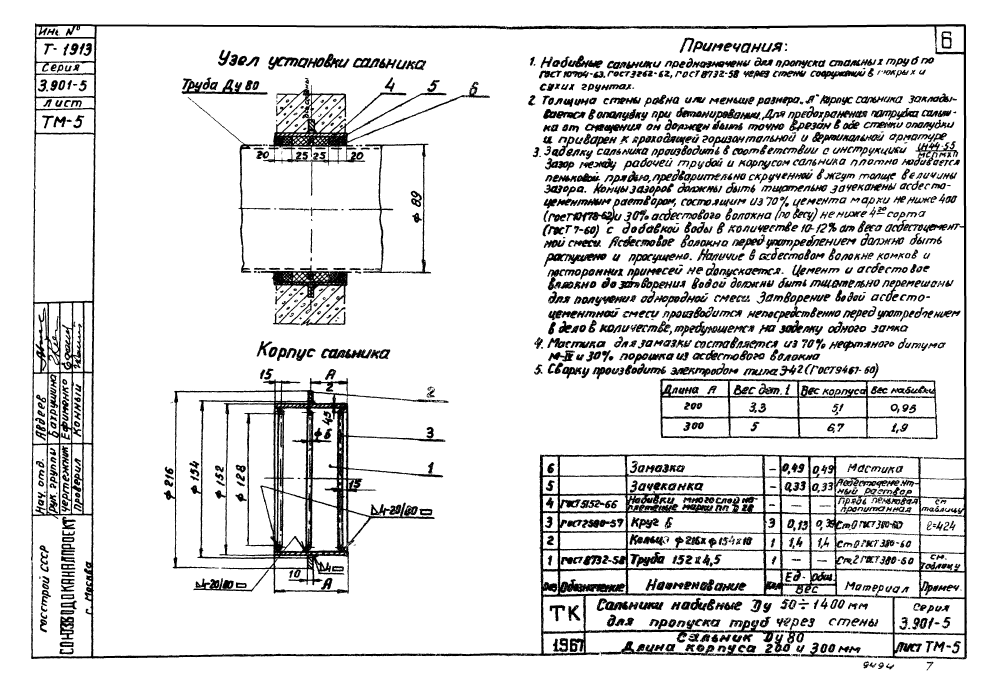 Инв. №
Т-1913
Серия
3.901-5
Лист
ТМ-5
Узел установки сальника
Труба Ду 80
4 5 6
20 25 25 20
ф 89
Корпус сальника
15 А
2
2
45
3
ф 6
1
15
ф 216
ф 154
ф 152
ф 128
10
А
6
Примечания:
1. Набивные сальники предназначены для пропуска стальных труб по
ГОСТ 10704-63, ГОСТ 3262-62, ГОСТ 8732-58 через стены сооружений в мокрых и
сухих грунтах.
2. Толщина стены равна или меньше размера „А" Корпус сальника заклады-
вается в опалубку при бетонировании. Для предохранения патрубка сальни-
ка от смещения он должен быть точно врезан в обе стенки опалубки
и приварен к проходящей горизонтальной и вертикальной арматуре
3. Заделку сальника производить в соответствии с инструкции
Зазор между рабочей трубой и корпусом сальника плотно набивается
пеньковой прядью, предварительно скрученной в жгут толще величины
зазора. Концы зазоров должны быть тщательно зачеканены асбесто-
цементным раствором, состоящим из 70% цемента марки не ниже 400
(ГОСТ 10178-62) и 30% асбестового волокна (по весу) не ниже 4го сорта
(ГОСТ 7-60) с добавкой воды в количестве 10-12% от веса асбестоцемент-
ной смеси. Асбестовое волокна перед употреблением должно быть
распушено и просушено. Наличие в асбестовом волокне комков и
посторонних примесей не допускается. Цемент и асбестовое
волокно до затворения водой должны быть тщательно перемешаны
для получения однородной смеси. Затворение водой асбесто-
цементной смеси производится непосредственно перед употреблением
в дело в количестве, требующемся на заделку одного замка
4. Мастика для замазки составляется из 70% нефтяного битума
М-IV и 30% порошка из асбестового волокна
5. Сварку производить электродом типа Э-42 (ГОСТ 9467-60)
Длина А Вес дет. 1 Вес корпуса Вес набивки
200 3,3 5,1 0,95
300 5 6,7 1,9
6 Замазка - 0,49 0,49 Мастика
5 Зачеканка - 0,33 0,33 Асбестоцементный раствор
4 ГОСТ 5152-66 Набивки многослойноплетеные марки - — — Прядь пеньковая пропитанная см. таблицу
3 ГОСТ 2590-57 Круг 6 3 0,13 0,39 Ст0 ГОСТ 380-60 ℓ=424
2 Кольцо ф 216хф 154х10 1 1,4 1,4 Ст0 ГОСТ 380-60
1 ГОСТ 8732-58 Труба 152х4,5 1 — — Ст2 ГОСТ 380-60 см. таблицу
Поз Обозначение Наименование Кол Ед. Общ. Вес Материал Примеч.
ТК
Сальники набивные Ду 50÷1400 мм
для пропуска труб через стены
Серия
3.901-5
1967
Сальник Ду 80
Длина корпуса 200 и 300 мм
Лист ТМ-5
9494 7
Нач. отд. Авдеев
Рук. группы Батрушина
Чертежник Ефименко
Проверил Конный
Госстрой СССР
СОЮЗВОДОКАНАЛПРОЕКТ
г. Москва